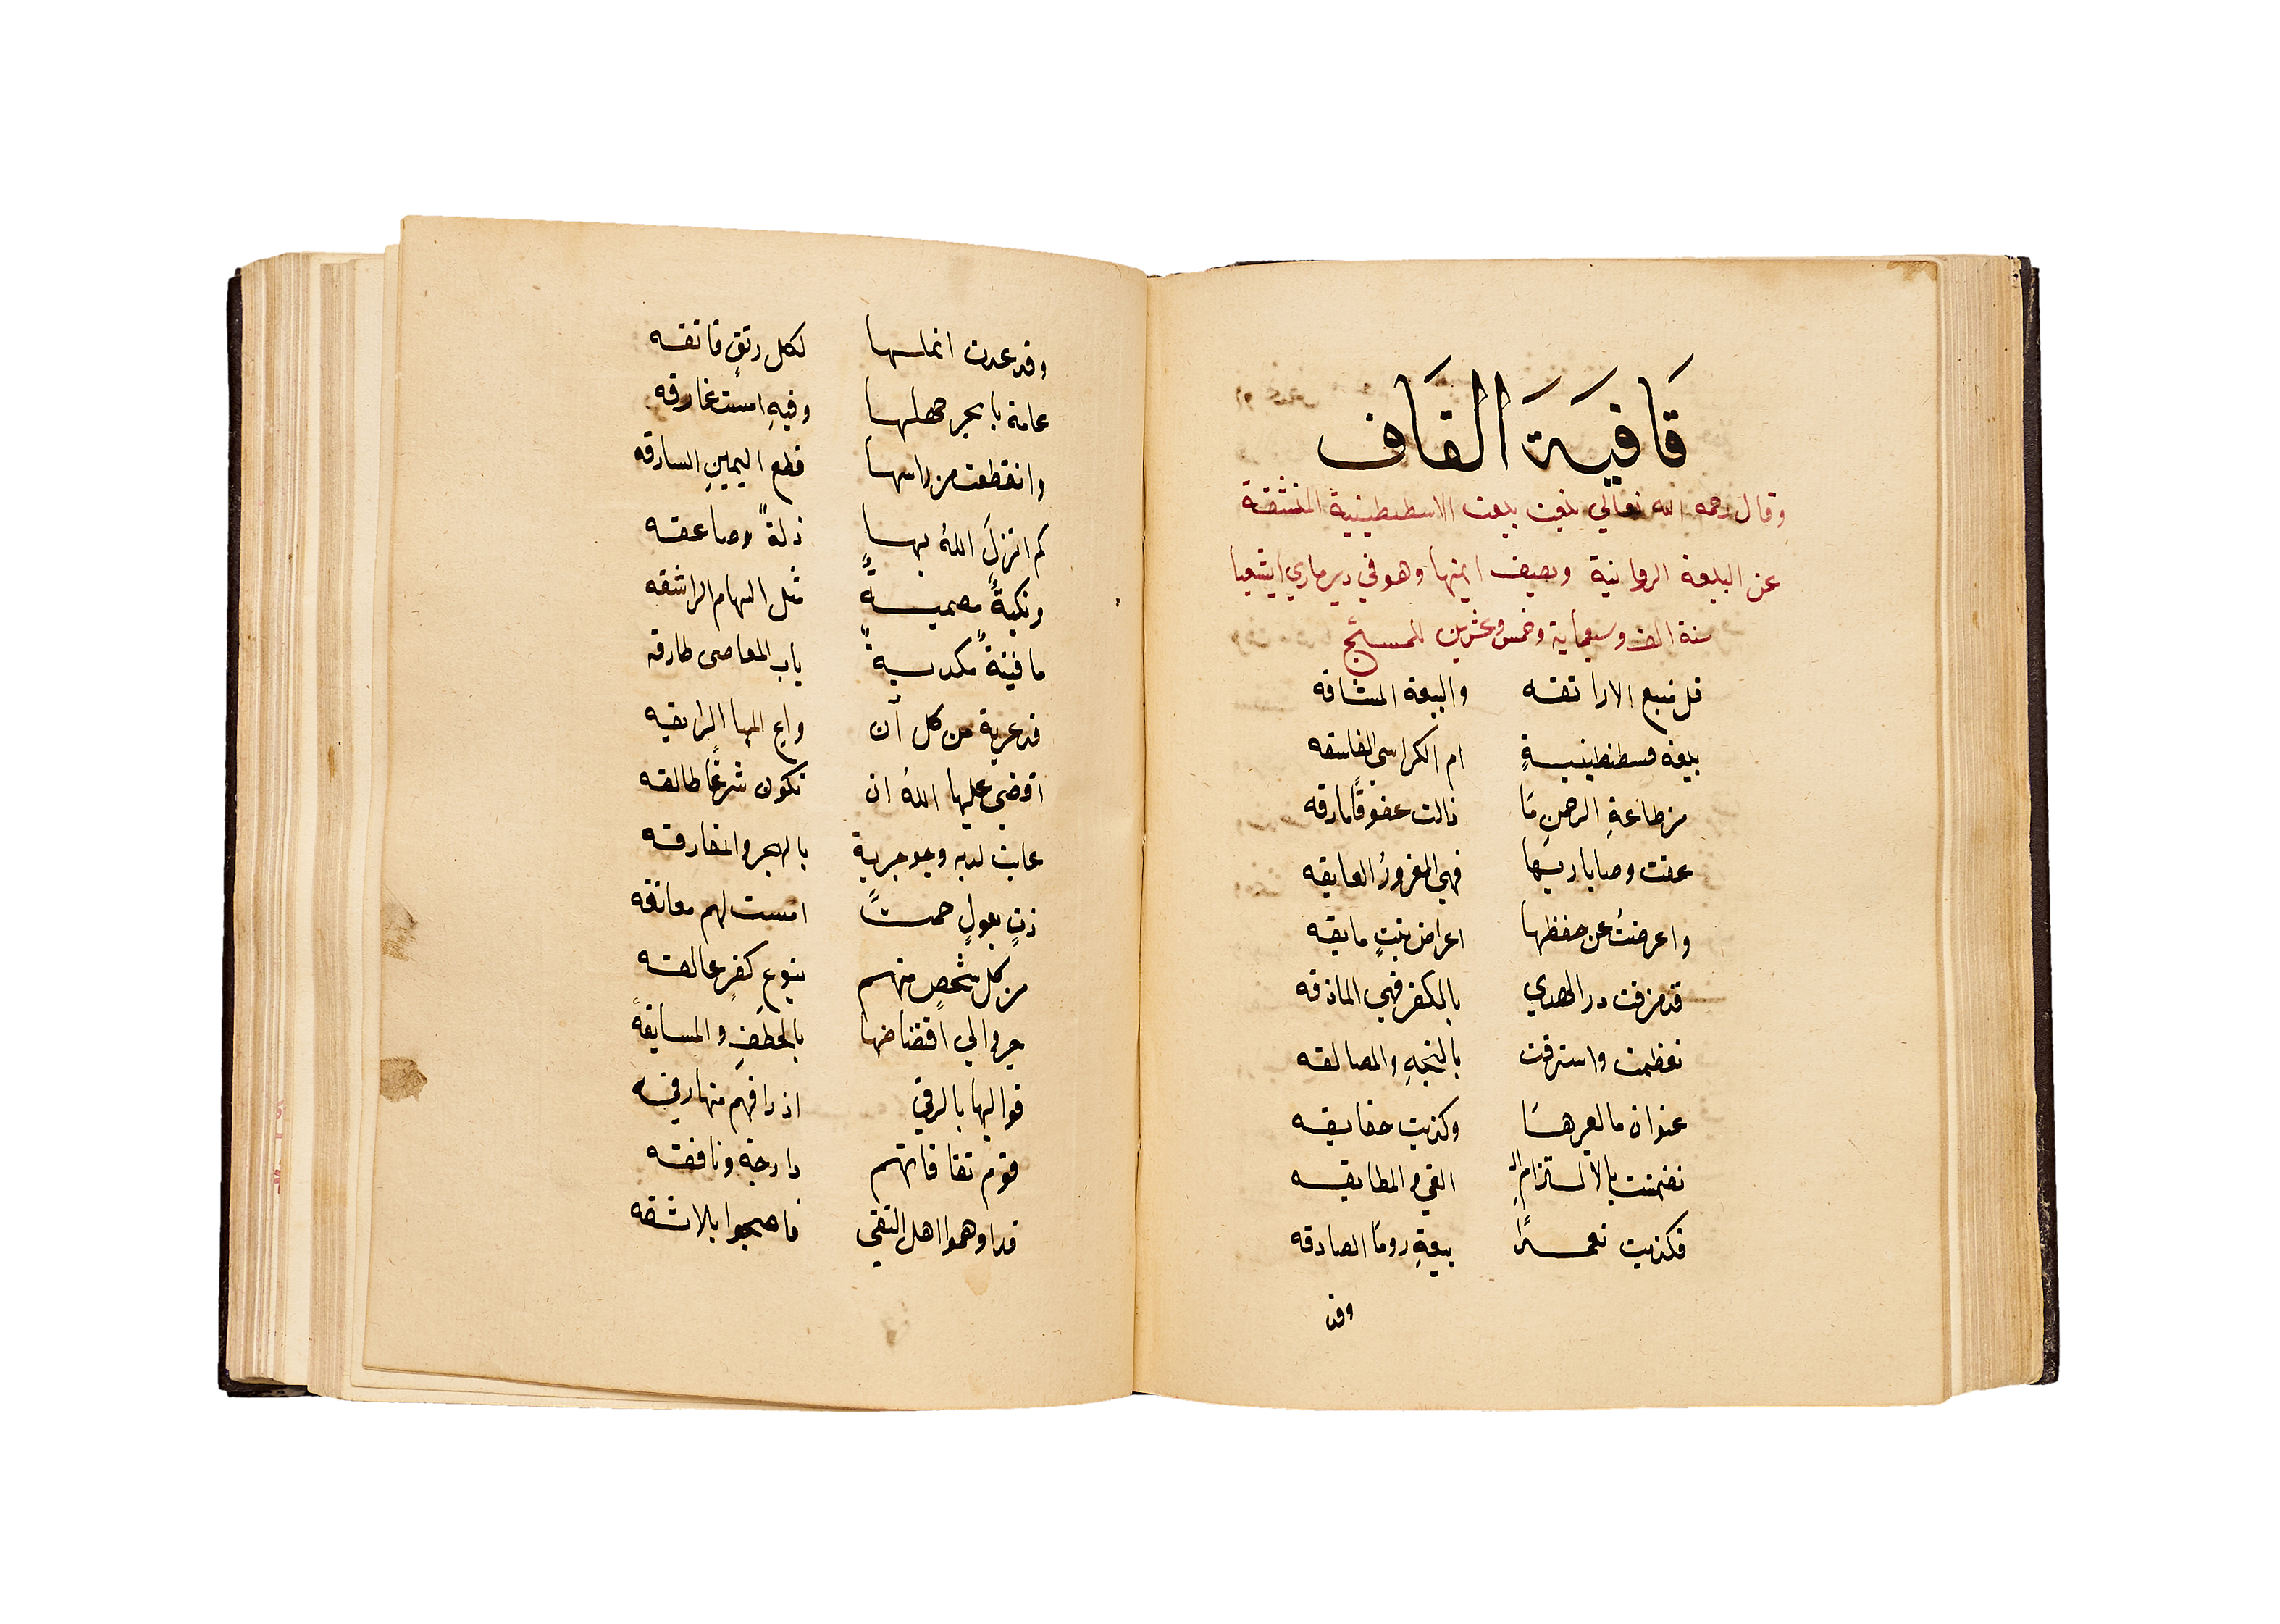 قَافيَةَ القَاف
وقال رحمه الله تعالي بيعت الاسطنطينية المنشقة
عن البيعة الرومانية ويصف ايمتها وهو في دير ماري ايشعيا
سنة الف وسبعماية وخمس وعشرين للمسيح
قل نبع الاراتقه والبيعة المشاقه
بيعة قسطنطينيةٍ ام الكراسي الفاسقه
من طاعةِ الرحمن مَا زالت عقوقًا مارقه
عقت وصايا ربها فهي الغرورُ العايقه
واعرضتُ عن حفظها اعراض بنتٍ مايقه
قد مزقت در الهدي بالكفر فهي الماذقه
تعظمت واسترقت بالتيهِ والمصالقه
عنوان ما لغيرهَا وكذبت حقايقه
تضمنت بالالتزام الـ الغي والمطابقه
فكذبت تعمدًا بيعةِ رومَا الصادقه
وقد
وقد غدت انملها لكل رتقٍ فاتقه
عامة بابحر جهلها وفيهِ امست غارقه
وانقطعت من راسها قطع اليمينِ السارقه
كم انزلَ اللهُ بها ذلةً وصاعقه
ونكبةً مصميةً مثل السهام الراشقه
ما فتنةً مكدسيةً باب المعاصي طارقه
قد عرية من كل آن واع البها الرايقه
اقضي عليها اللهُ ان تكون شرعًا طالقه
عابت لديه وجو جرية بالهجر والمفارقه
ذتِ بعولٍ جمةً امست لهم معانقه
من كل شخصٍ منهم بنوعِ كفرٍ عالقه
جروا الي اقتناضها بالخطفِ والمسابقة
قوم نفاقاتهم دارجة ونافقه
قد اوهموا اهل التقي فاصبحوا بلا ثقه